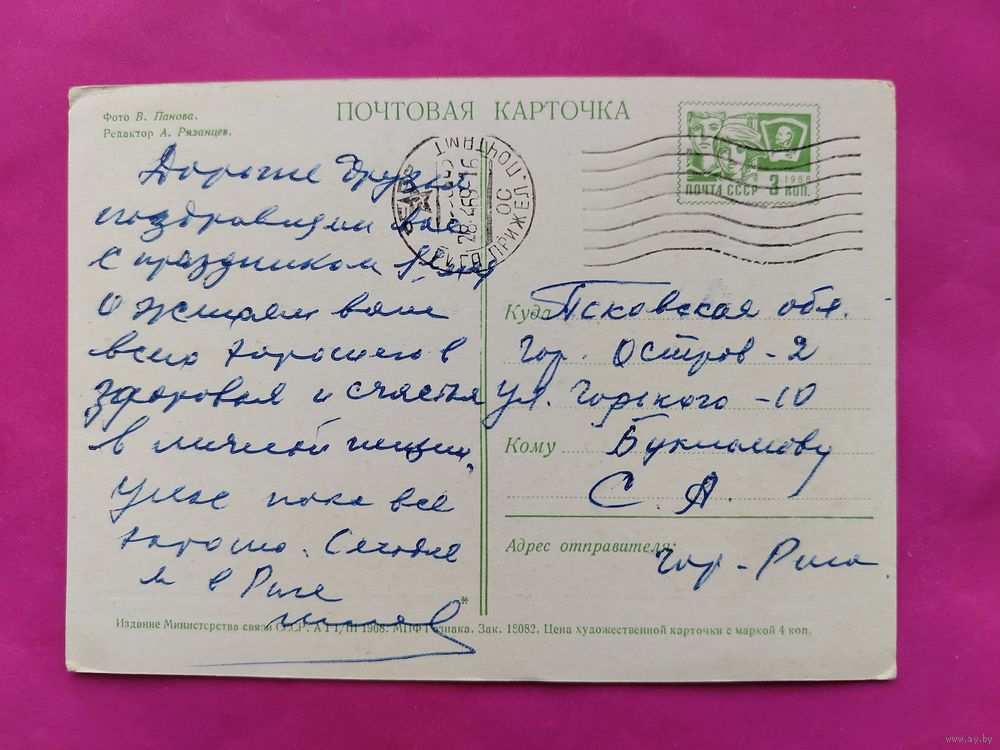 Фото В. Панова.
Редактор А. Рязанцев.
ПОЧТОВАЯ КАРТОЧКА
ПОЧТА СССР 3 КОП.
1966
РИГА ПРИЖЕЛ. ПОЧТАМТ
ОС
28.4.69-16
Дорогие друзья
поздравляем вас
с праздником 1 мая
и желаем вам
всего хорошего в
здоровья и счастья
в личной жизни.
У нас пока всё
хорошо. Сегодня
я в Риге
Куда Псковская обл.
гор. Остров-2
ул. Горького-10
Кому
С. А.
Адрес отправителя:
гор-Рига.
*
Издание Министерства связи СССР. А 11/III 1968. МПФ Гознака. Зак. 18082. Цена художественной карточки с маркой 4 коп.
www.ay.by